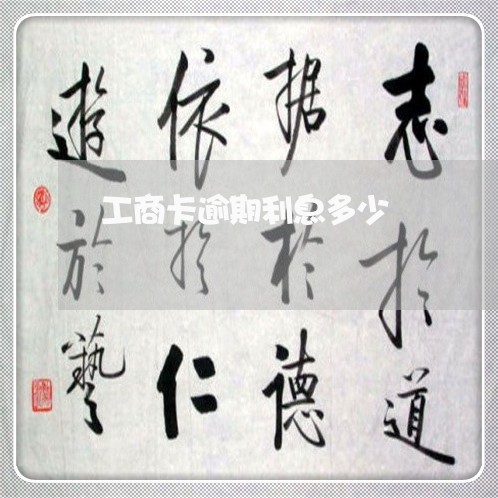 志於道
据於德
依於仁
遊於藝
工商卡逾期利息多少